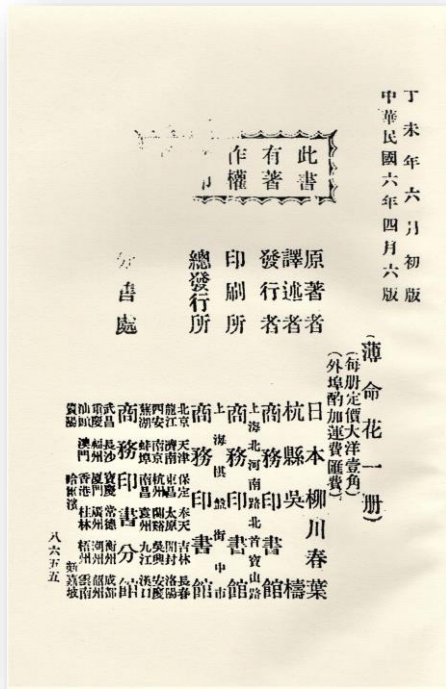 丁未年六月初版
中華民國六年四月六版
(薄命花一册)
(每册定價大洋壹角)
(外埠酌加運費匯費)
此書
有著
作權
原著者 日本柳川春葉
譯述者 杭縣吳檮
發行者 商務印書館
上海北河南路北首寶山路
印刷所 商務印書館
上海棋盤街中市
總發行所 商務印書館
北京 天津 保定 奉天 吉林 長春
龍江 濟南 東昌 太原 開封 洛陽
西安 南京 杭州 蘭谿 吳興 安慶
蕪湖 蚌埠 南昌 袁州 九江 漢口
分售處 商務印書分館
武昌 長沙 寶慶 常德 衡州 成都
重慶 福州 廈門 廣州 潮州 韶州
汕頭 澳門 香港 桂林 梧州 雲南
貴陽 哈爾濱 新嘉坡
八六五五